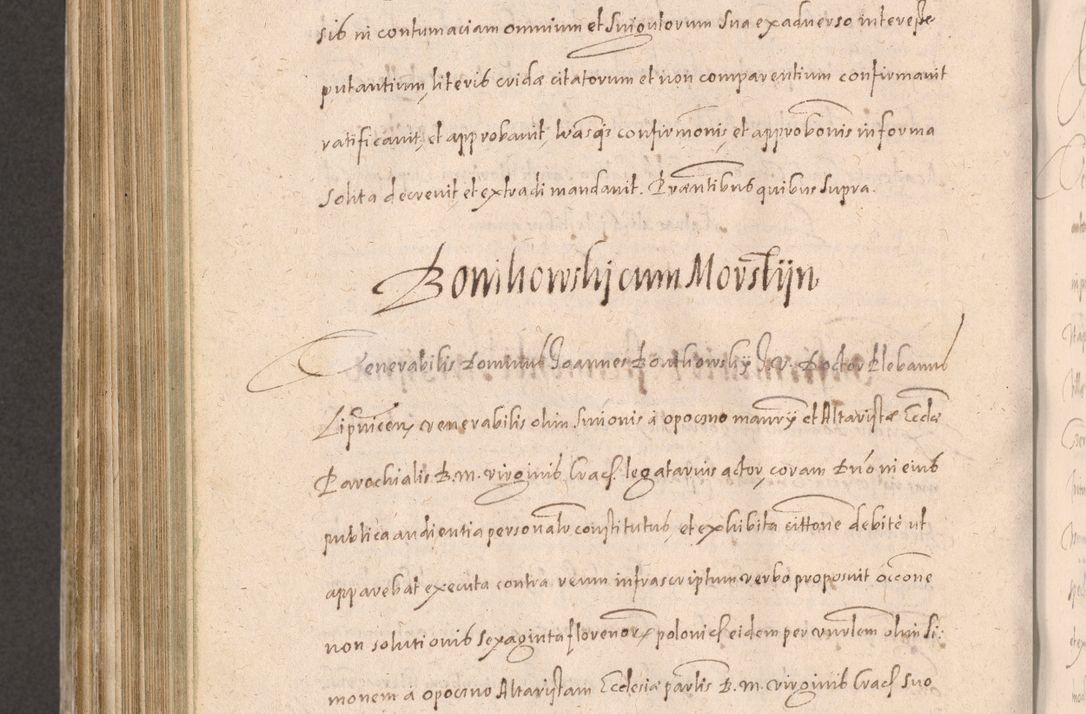 sis in contumaciam omnium et singulorum sua ex adverso interesse
putantium, literis cridæ citatorum et non comparentium confirmavit
ratificavit, et approbavit, lrasq͡s confirmonis, et approbonis in forma
solita decrevit et extradi mandavit. Præntibus quibus supra.
Bonikowskij cum Morstijn
Venerabilis Dominus Joannes Bonikowskij J. V. Doctor Plebanus
Lipnicen, venerabilis olim Simonis à opocno mansry et Altaristæ Eccliæ
Parochialis B. M. virginis Cracf. legatarius actor, coram Dno in eius
publica audientia personalr constitutus, et exhibita cittone debitè ut
apparebat executa contra reum infrascriptum verbo proposuit occone
non solutionis sexaginta florenor, polonicf. eidem per cunlem olim Si:
monem à opocno Altaristam Ecclesiæ parlis B. M. virginis Cracf. suo